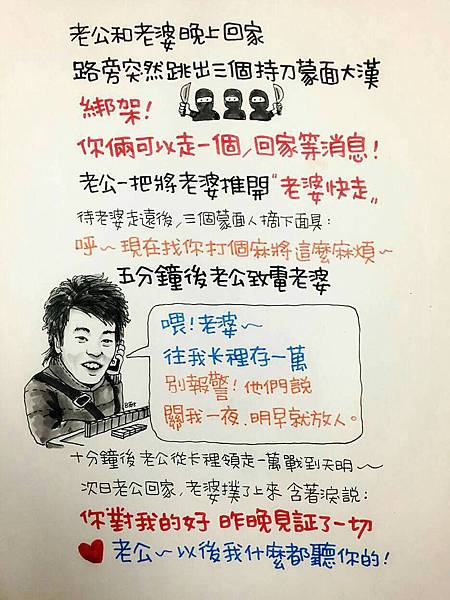 老公和老婆晚上回家
路旁突然跳出三個持刀蒙面大漢
綁架!
你倆可以走一個,回家等消息!
老公一把將老婆推開"老婆快走"
待老婆走遠後,三個蒙面人摘下面具:
呼~現在找你打個麻將這麼麻煩~
五分鐘後老公致電老婆
喂!老婆~
往我卡裡存一萬
別報警!他們說
關我一夜.明早就放人。
十分鐘後老公從卡裡領走一萬戰到天明~
次日老公回家,老婆撲了上來含著淚說:
你對我的好 昨晚見証了一切
老公~以後我什麼都聽你的!